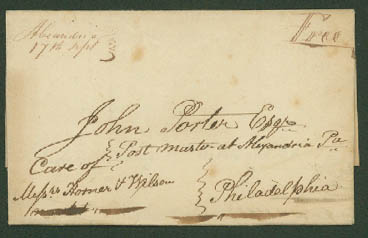 Alexandria
17th Sept
Free
John Porter Esqr
Post master at Alexandria Pa
Care of
Messrs Horner & Wilson
Philadelphia